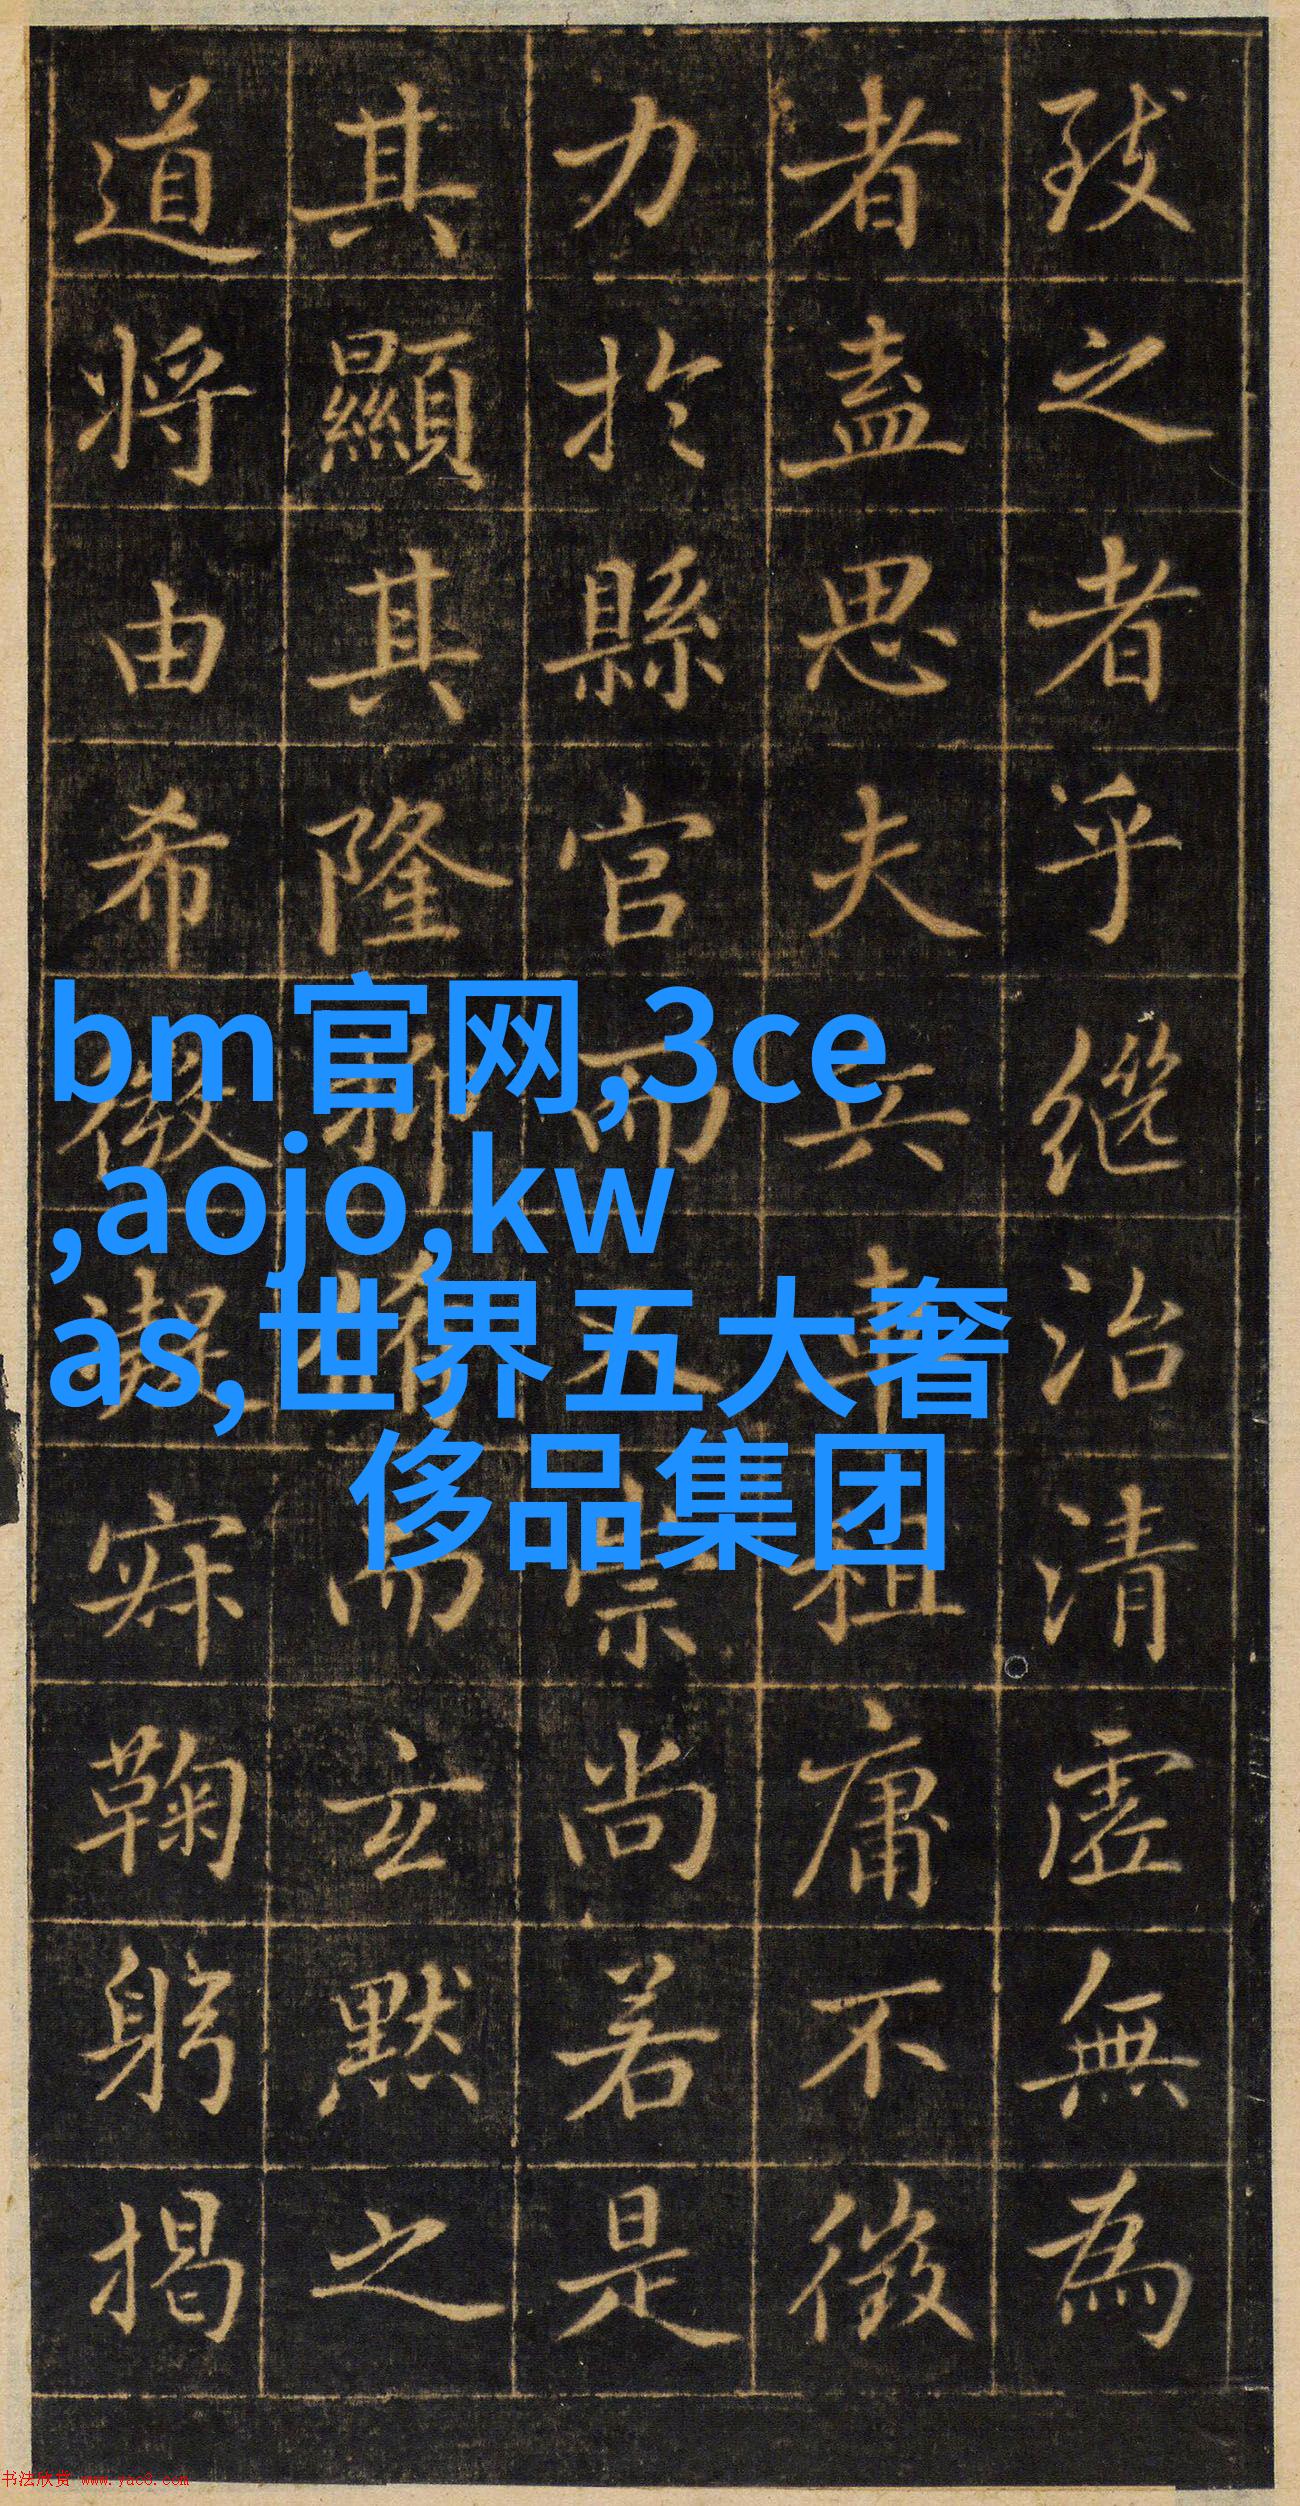 致之者乎繼治清虛無為
者盡思夫兵車租庸不徵
力於縣官而又崇尚若是
其顯其隆而玄默之
道將由希微寂鞠躬揭
bm官网,3ce
,aojo,kw
as,世界五大奢
侈品集团
书法欣赏 www.yac8.com